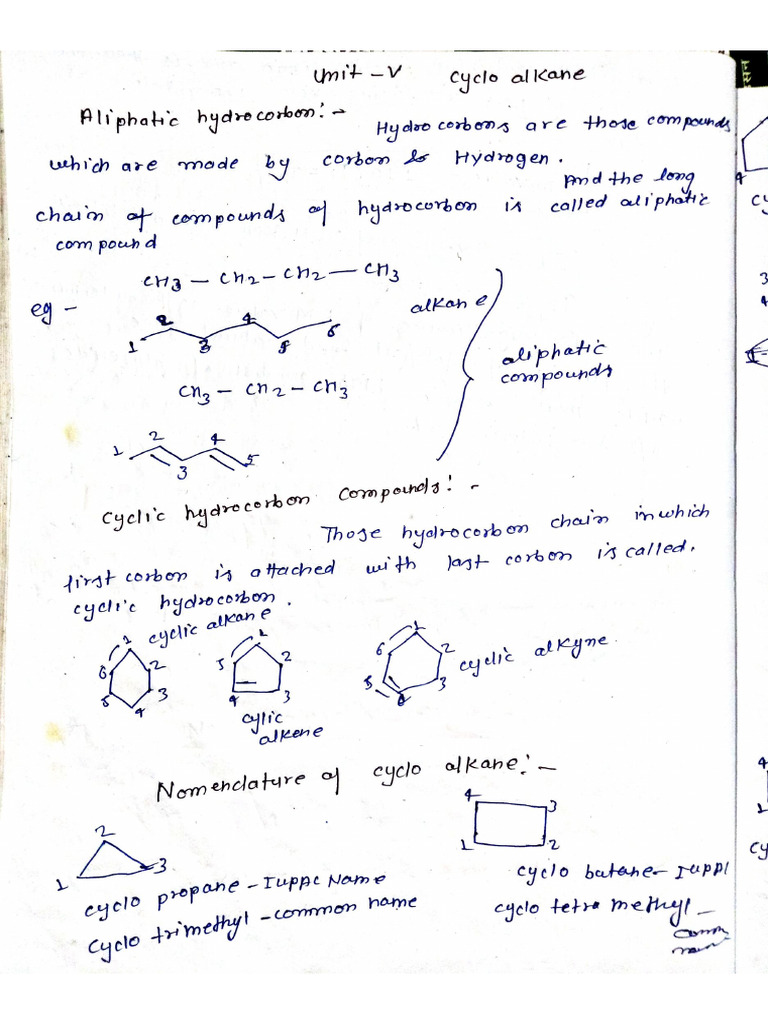 Unit - V cyclo alkane
Aliphatic hydrocorbon:-
Hydrocorbons are those compounds
which are made by corbon & Hydrogen.
And the long
chain of compounds of hydrocorbon is called aliphatic
compound
CH3 - CH2 - CH2 - CH3
eg -
alkane
1 2 3 4 5 6
aliphatic
compounds
CH3 - CH2 - CH3
1 2 3 4 5
cyclic hydrocorbon compounds:-
Those hydrocorbon chain in which
first corbon is attached with last corbon is called.
cyclic hydrocorbon.
cyclic alkane
1 2 3 4 5 6
1 2 3 4 5
cylic
alkene
1 2 3 5 6
cyclic alkyne
Nomenclature of cyclo alkane:-
1 2 3
cyclo propane - IUPPC Name
cyclo trimethyl - common name
4 3
1 2
cyclo butane - IUPPC
cyclo tetra methyl -
3
4
4
1
cy